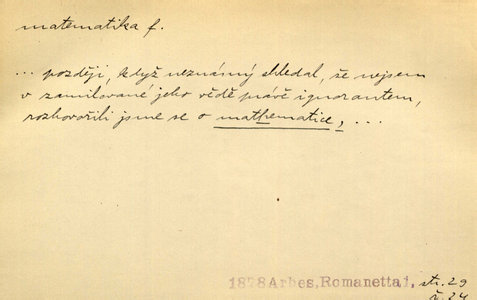 matematika f.
... později, když neznámý shledal, že nejsem
v zamilované jeho vědě právě ignorantem,
rozhovořili jsme se o mathematice, ...
1878 Arbes, Romanetta 1, str. 29
ř. 24